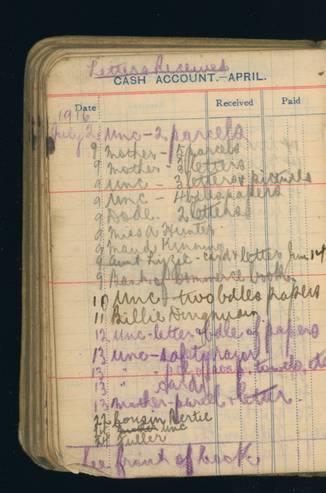 Letters Received
CASH ACCOUNT.—APRIL.
Date Received Paid
1916
July 2 Unc - 2 parcels
9 Mother - 5 parcels
9 Mother - 3 letters
9 Unc - 3 letters & pictures
9 Unc - 4 newspapers
9 Dode. 2 letters
9 Miss A Hunter
9 Maud
9 Aunt Lizzie - card & letter Jun 14
9 Bank of Commerce book
10 Unc - two bdles papers
11 Billie
12 Unc - letter & bdle of papers
13 Unc - safety razor
13 " of soap, towels,
13 " Sards
13 Mother - parcel & letter
22 Cousin Bertie
unc
24 Fuller
See front of book